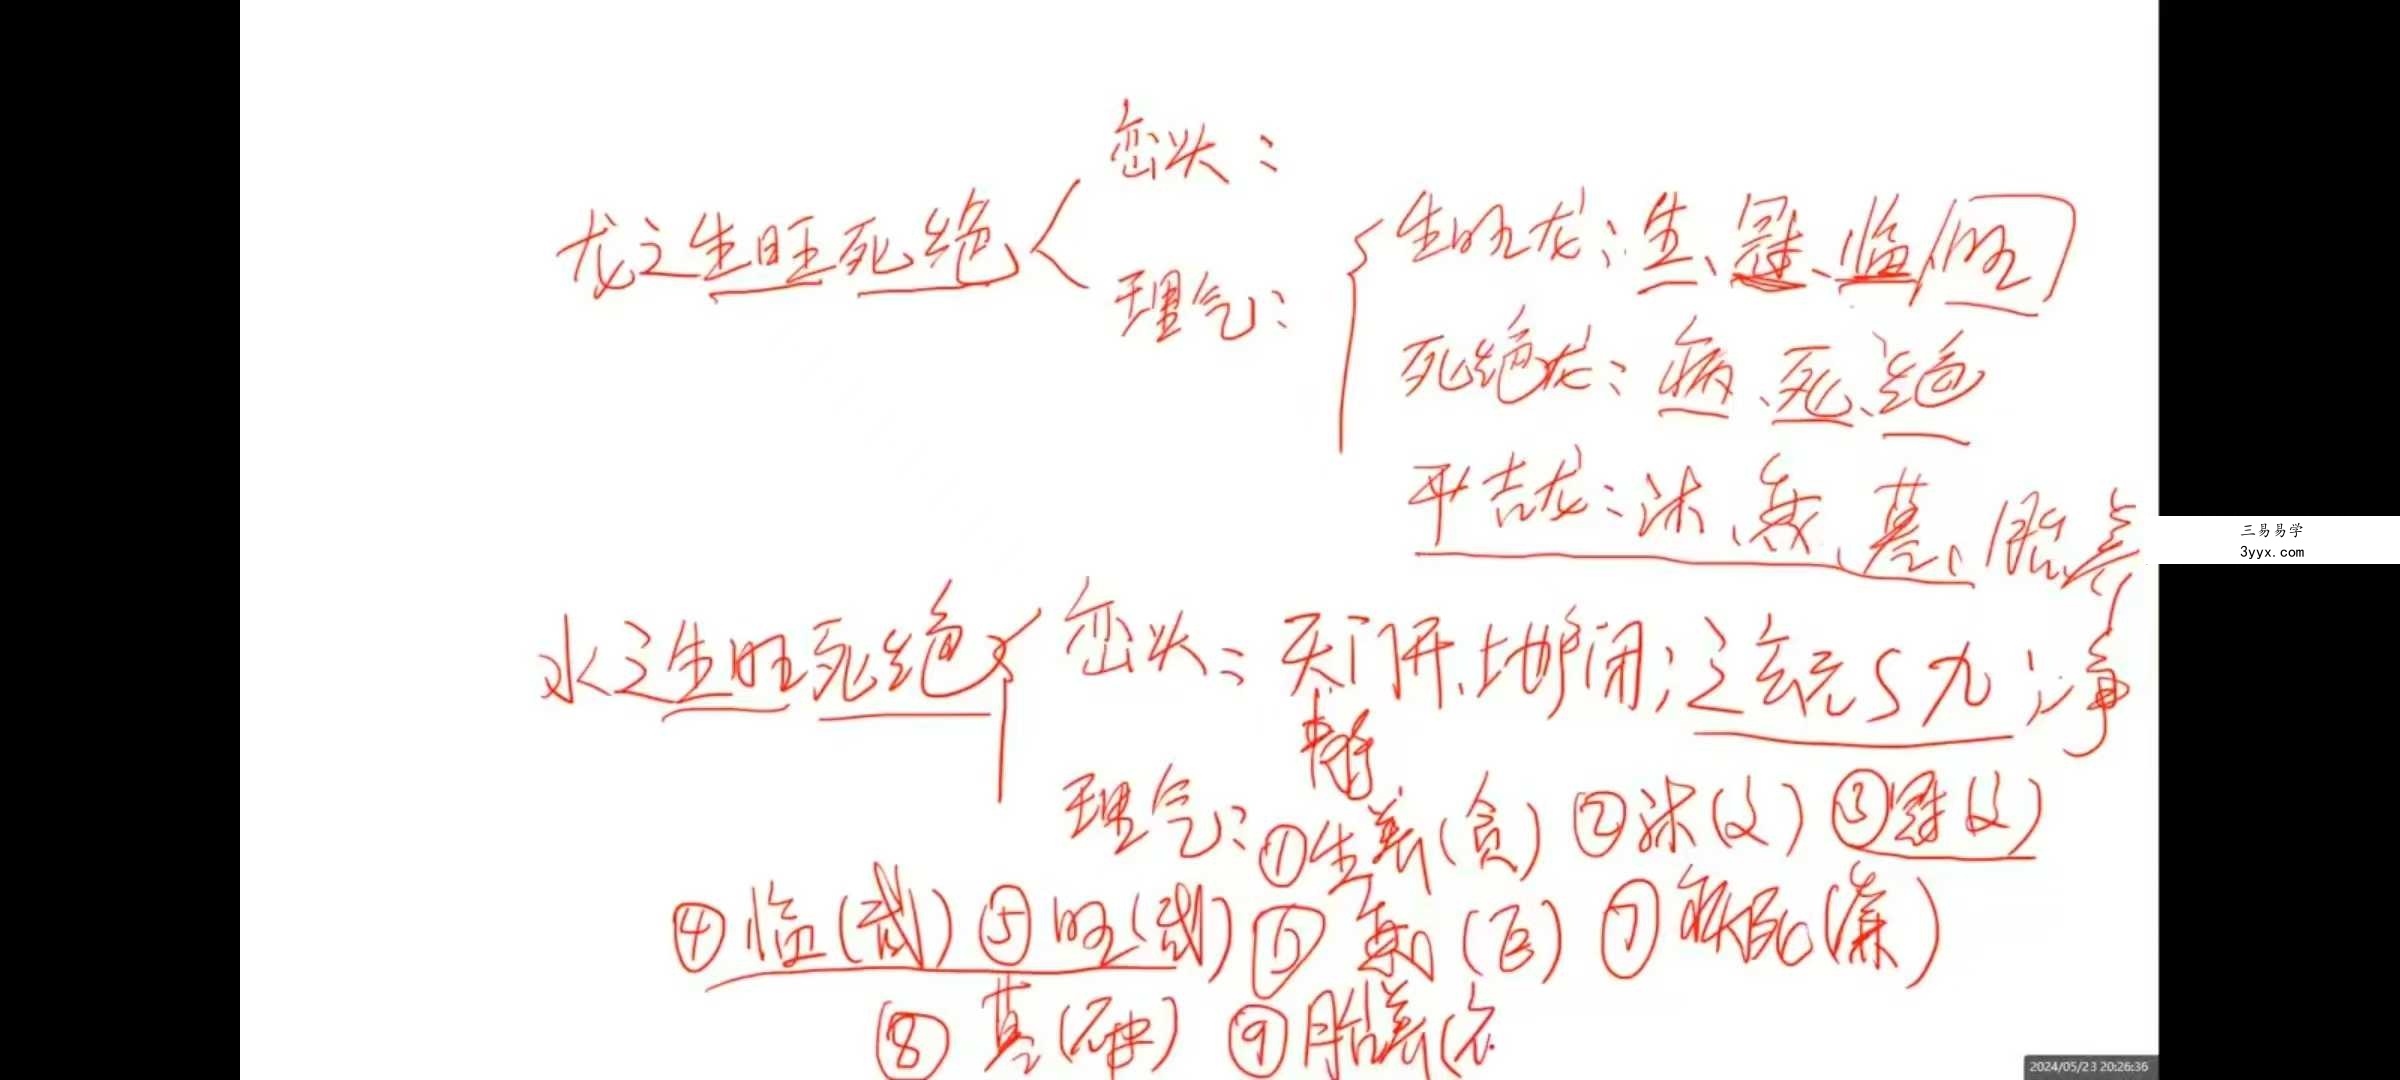 峦头：
龙之生旺死绝
生旺龙：生、冠、临、旺
理气：
死绝龙：病、死、绝
平吉龙：沐、衰、墓、胎养
三易易学
3yyx.com
水之生旺死绝
峦头：天门开、地户闭；之玄元S九；净
静
理气：①生养(贪) ②沐(文) ③冠(文)
④临(武) ⑤旺(武) ⑥衰(巨) ⑦病死(廉)
⑧墓(破) ⑨胎养(
2024/05/23 20:26:36